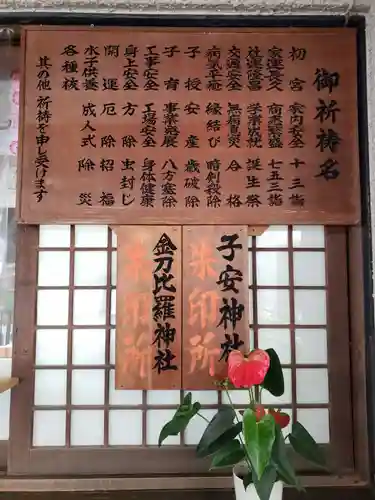 御祈祷名
初宮 家内安全 十三詣
家運長久 商売繁盛 七五三詣
社運隆昌 学業成就 誕生祭
交通安全 無病息災 合格
病気平癒 縁結び 暗剣殺除
子授 安産 歳破除
子育 事業発展 八方塞除
工事安全 工場安全 身体健康
身上安全 方除 虫封じ
開運 厄除 招福
水子供養 成人式 除災
各種祓
其の他 祈祷を申し受けます
子安神社
朱印所
金刀比羅神社
朱印所